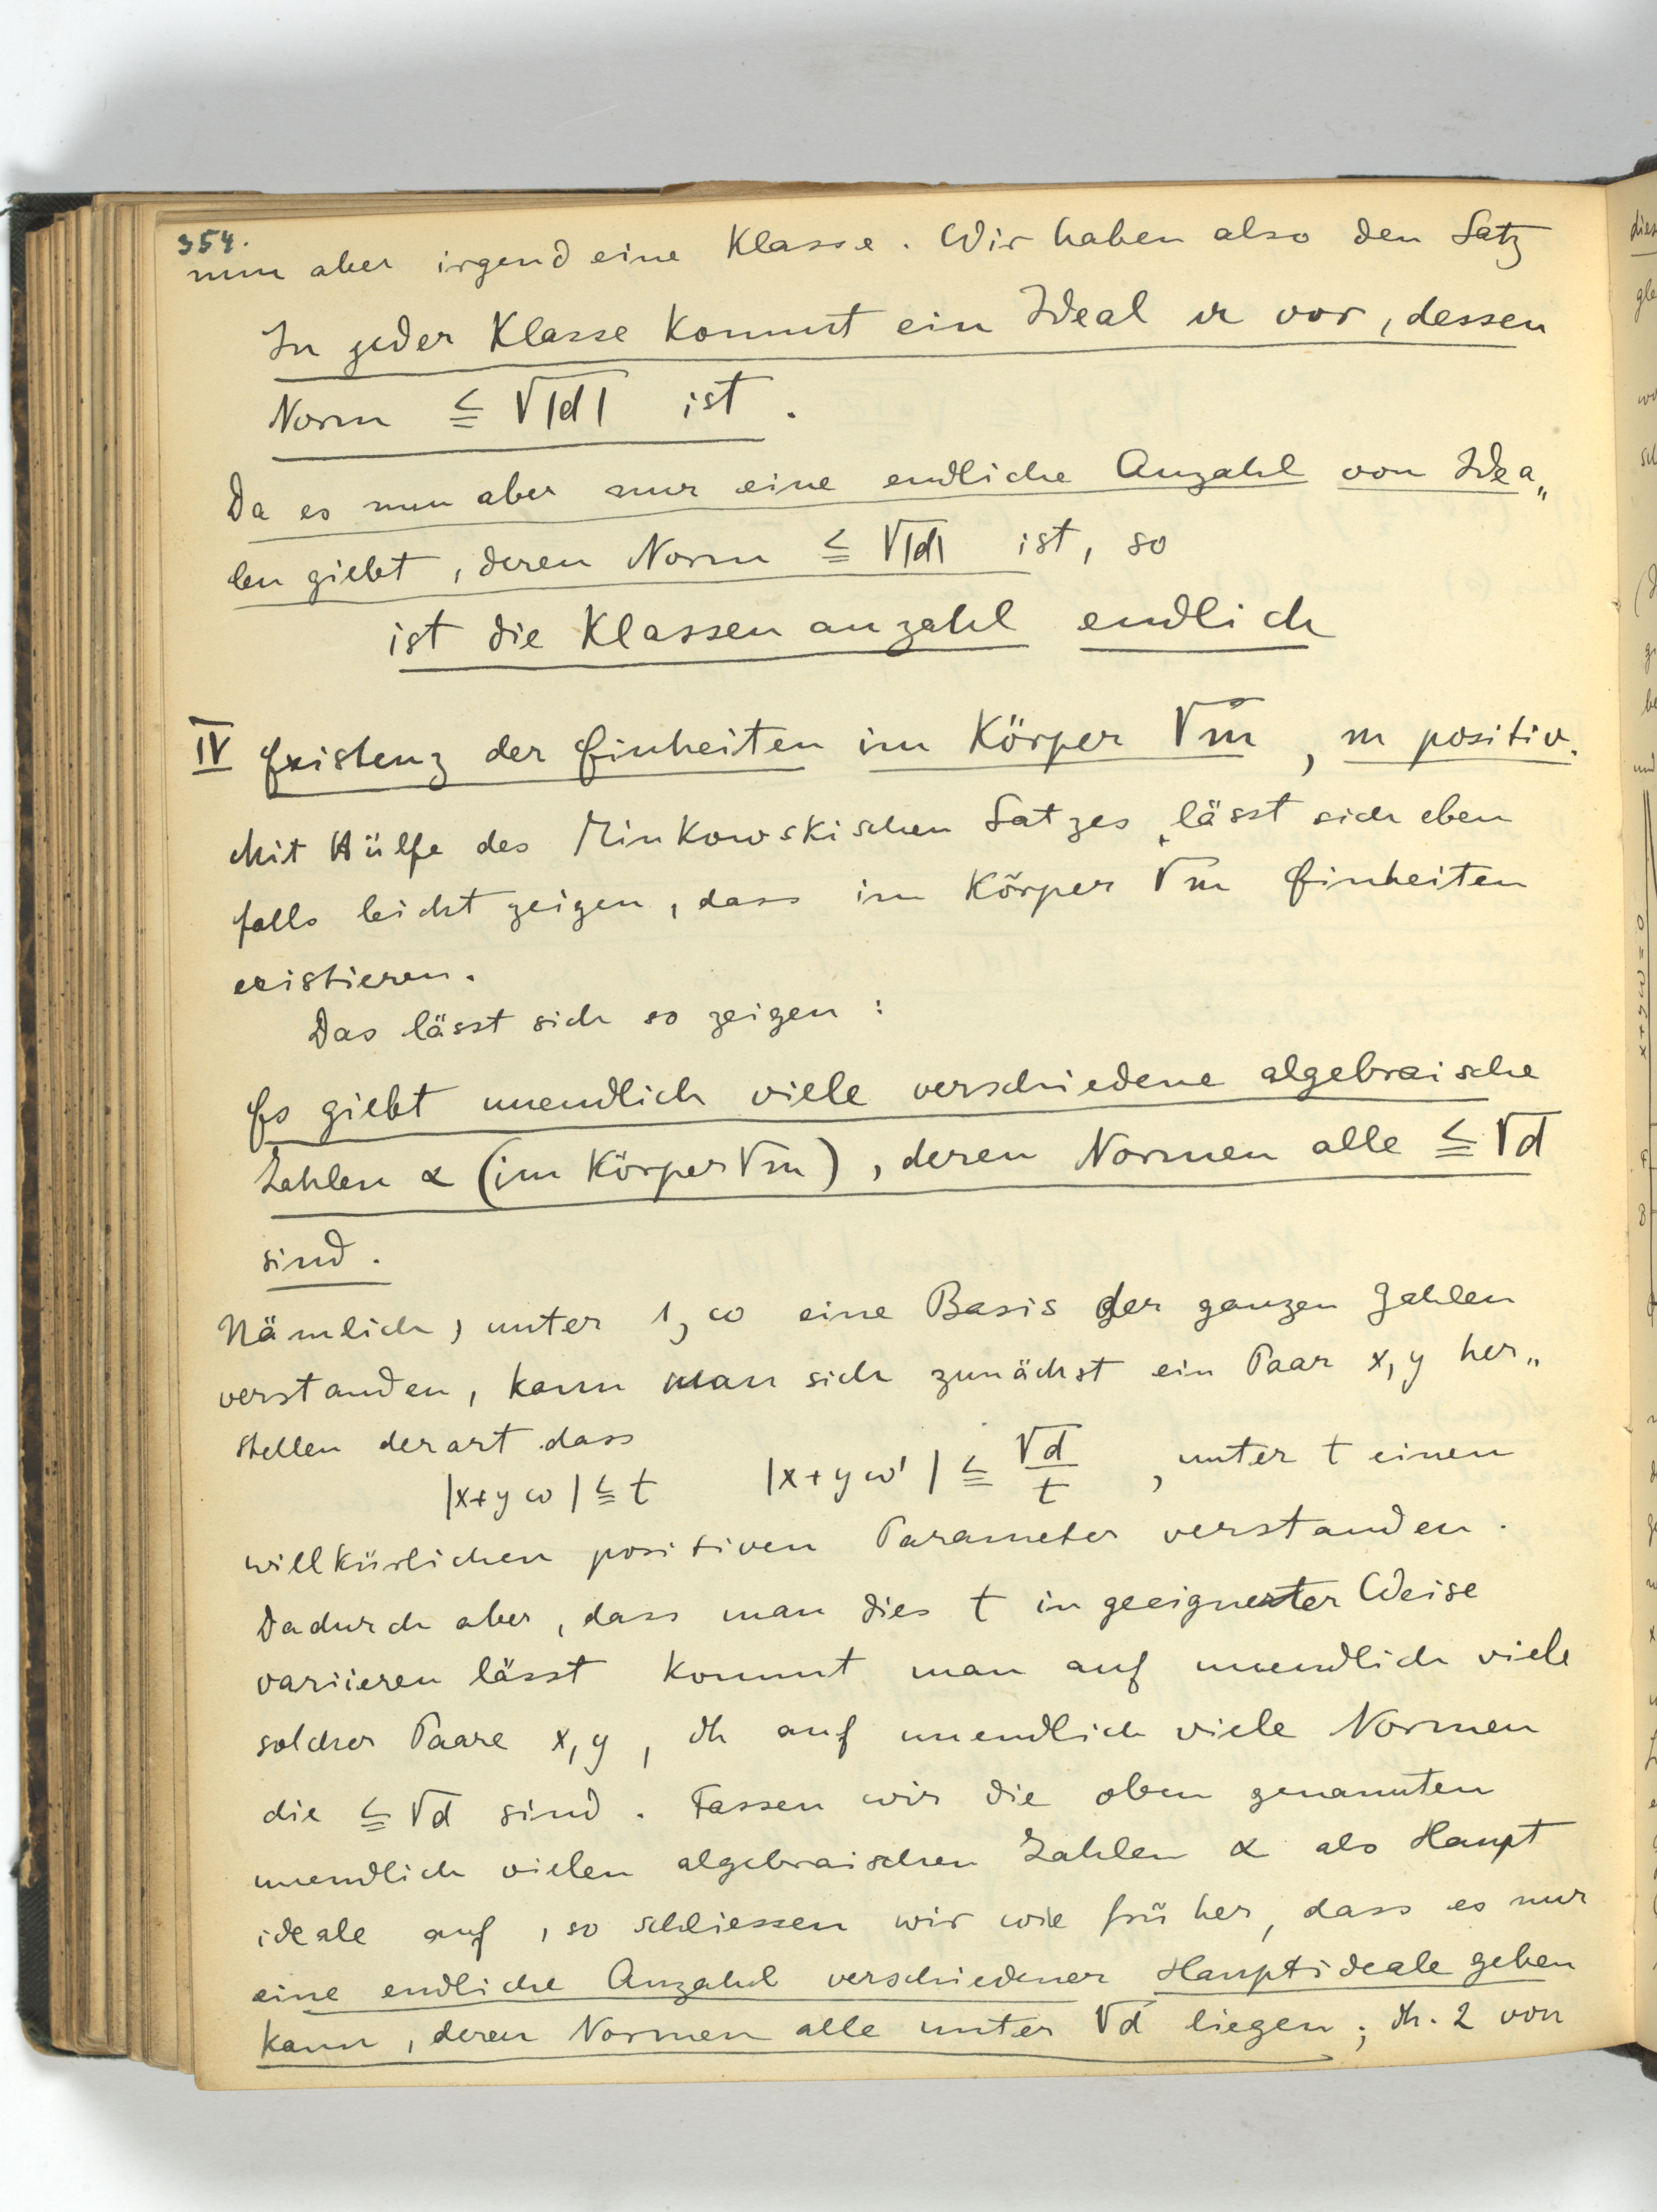 354.
nun aber irgend eine Klasse. Wir haben also den Satz
In jeder Klasse kommt ein Ideal vor, dessen
Norm ≦ √|d| ist.
Da es nun aber nur eine endliche Anzahl von Idea„
len giebt, deren Norm ≦ √|d| ist, so
ist die Klassenanzahl endlich
IV Existenz der Einheiten im Körper √m, m positiv.
Mit Hülfe des Minkowskischen Satzes lässt sich eben
falls leicht zeigen, dass im Körper √m Einheiten
existieren.
Das lässt sich so zeigen:
Es giebt unendlich viele verschiedene algebraische
Zahlen α (im Körper √m), deren Normen alle ≦ √d
sind.
Nämlich, unter 1, ω eine Basis der ganzen Zahlen
verstanden, kann man sich zunächst ein Paar x, y her„
stellen derart dass
|x+yω| ≦ t |x+yω'| ≦ √d/t, unter t einen
willkürlichen positiven Parameter verstanden.
Dadurch aber, dass man dies t in geeigneter Weise
variieren lässt kommt man auf unendlich viele
solcher Paare x, y, dh auf unendlich viele Normen
die ≦ √d sind. Fassen wir die oben genannten
unendlich vielen algebraischen Zahlen α als Haupt
ideale auf, so schliessen wir wie früher, dass es nur
eine endliche Anzahl verschiedener Hauptideale geben
kann, deren Normen alle unter √d liegen; dh. 2 von